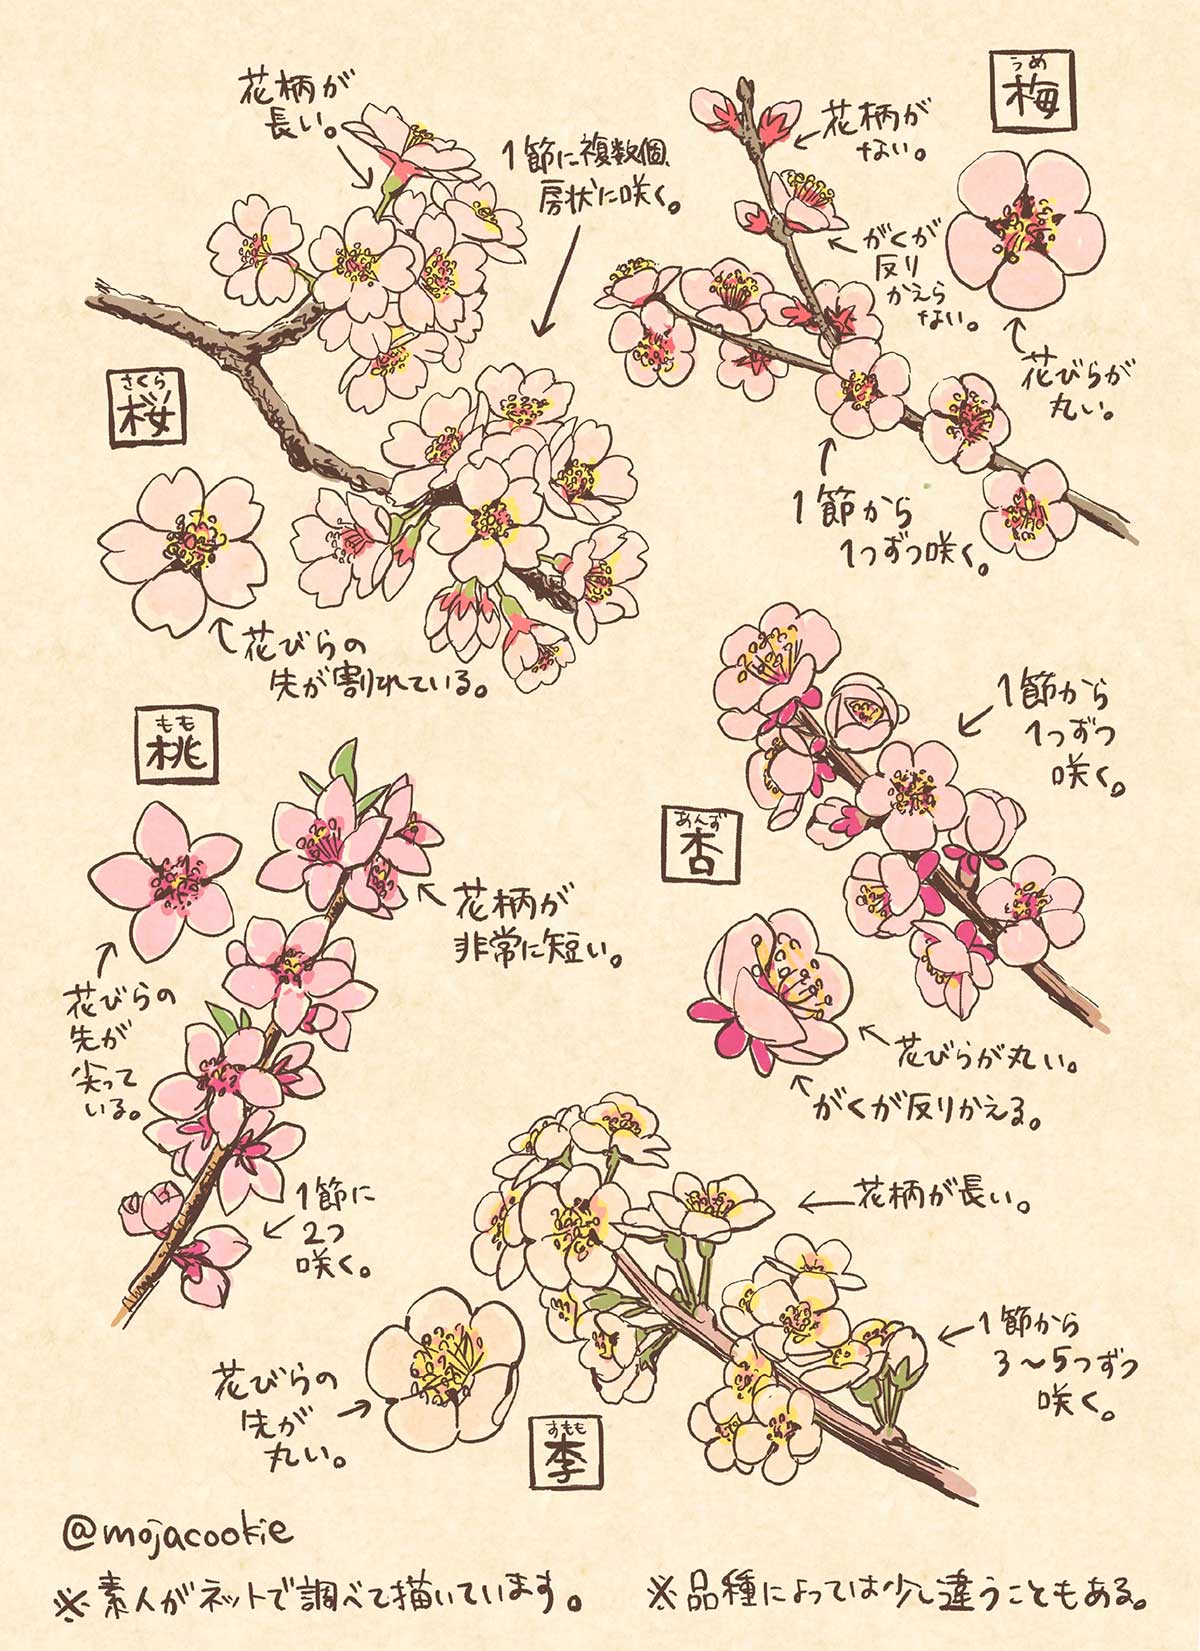 花柄が
長い。
1節に複数個、
房状に咲く。
さくら
桜
花びらの
先が割れている。
うめ
梅
花柄が
ない。
がくが
反り
かえら
ない。
花びらが
丸い。
1節から
1つずつ咲く。
もも
桃
花びらの
先が
尖って
いる。
花柄が
非常に短い。
1節に
2つ
咲く。
あんず
杏
1節から
1つずつ
咲く。
花びらが丸い。
がくが反りかえる。
すもも
李
花柄が長い。
1節から
3〜5つずつ
咲く。
花びらの
先が
丸い。
@mojacookie
※素人がネットで調べて描いています。
※品種によっては少し違うこともある。